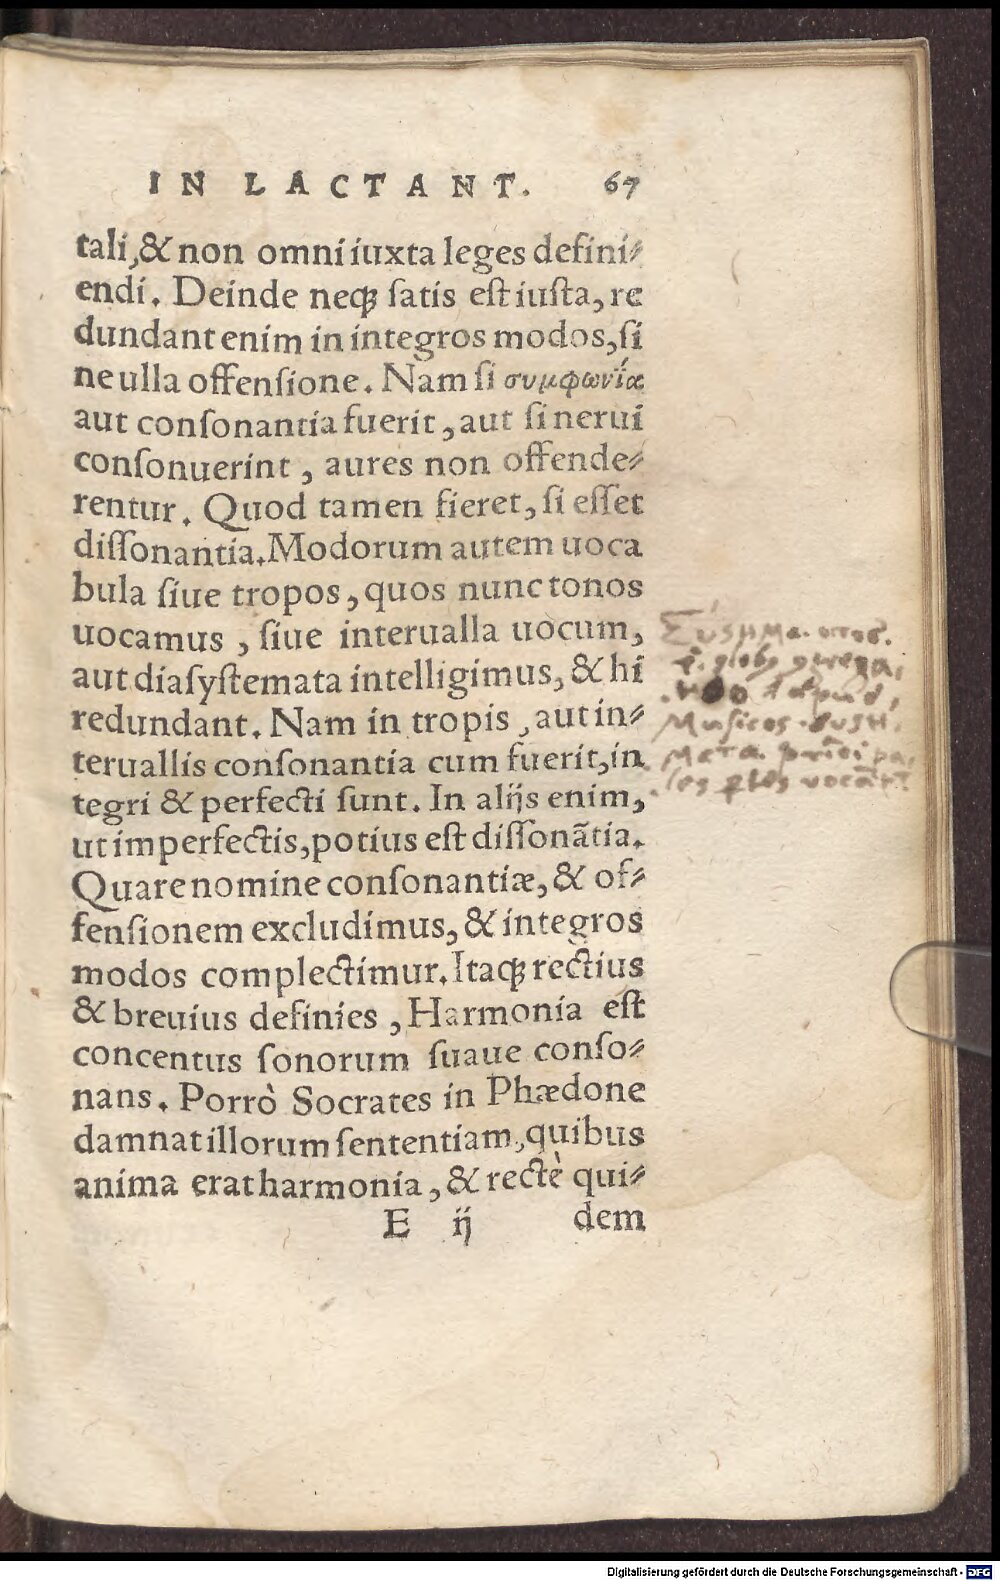 IN LACTANT. 67
tali, & non omni iuxta leges defini⸗
endi. Deinde neqꝫ ſatis eſt iuſta, re
dundant enim in integros modos, ſi
ne ulla offenſione. Nam ſi συμφωνία
aut conſonantia fuerit, aut ſi nerui
conſonuerint, aures non offende⸗
rentur. Quod tamen fieret, ſi eſſet
diſſonantia. Modorum autem uoca
bula ſiue tropos, quos nunc tonos
uocamus, ſiue interualla uocum,
aut diaſyſtemata intelligimus, & hi
redundant. Nam in tropis, aut in⸗
teruallis conſonantia cum fuerit, in
tegri & perfecti ſunt. In alijs enim,
ut imperfectis, potius eſt diſſonãtia.
Quare nomine conſonantiæ, & of⸗
fenſionem excludimus, & integros
modos complectimur. Itaqꝫ rectius
& breuius definies, Harmonia eſt
concentus ſonorum ſuaue conſo⸗
nans. Porrò Socrates in Phædone
damnat illorum ſententiam, quibus
anima erat harmonia, & rectè qui⸗
E ij dem
Musicos
Digitalisierung gefördert durch die Deutsche Forschungsgemeinschaft - DFG